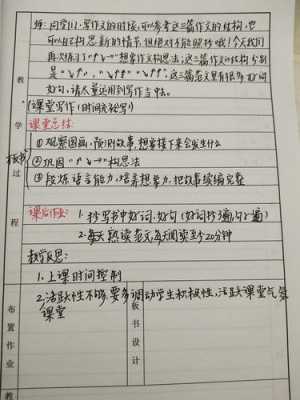 师:同学们,写作文的时候,可以参考这三篇作文的结构,也
可以自己构思新的情节,但绝对不能照抄哦!今天我们
再次练习了"↗↘→"想象作文构思法,这三篇作文的结构分别
是
这三篇范文里有很多好词
好句,请大家运用到写作当中去。
(课堂写作)(时间充裕写)
课堂总结:
①观察图画,预测故事,想象接下来会发生什么
②巩固"↗↘→"构思法
③段炼语言能力,培养想象力,把故事续编完整
课后作业:1.抄写书中好词、好句(好词抄3遍,句2遍)
2.每天熟读范文,每天阅读至少20分钟
教学反思:
1.上课时间控制
2.活跃性不够,要多调动学生积极性,活跃课堂气氛
课堂
教
学
过
程
板书
布
置
作
业
板
书
设
计
教